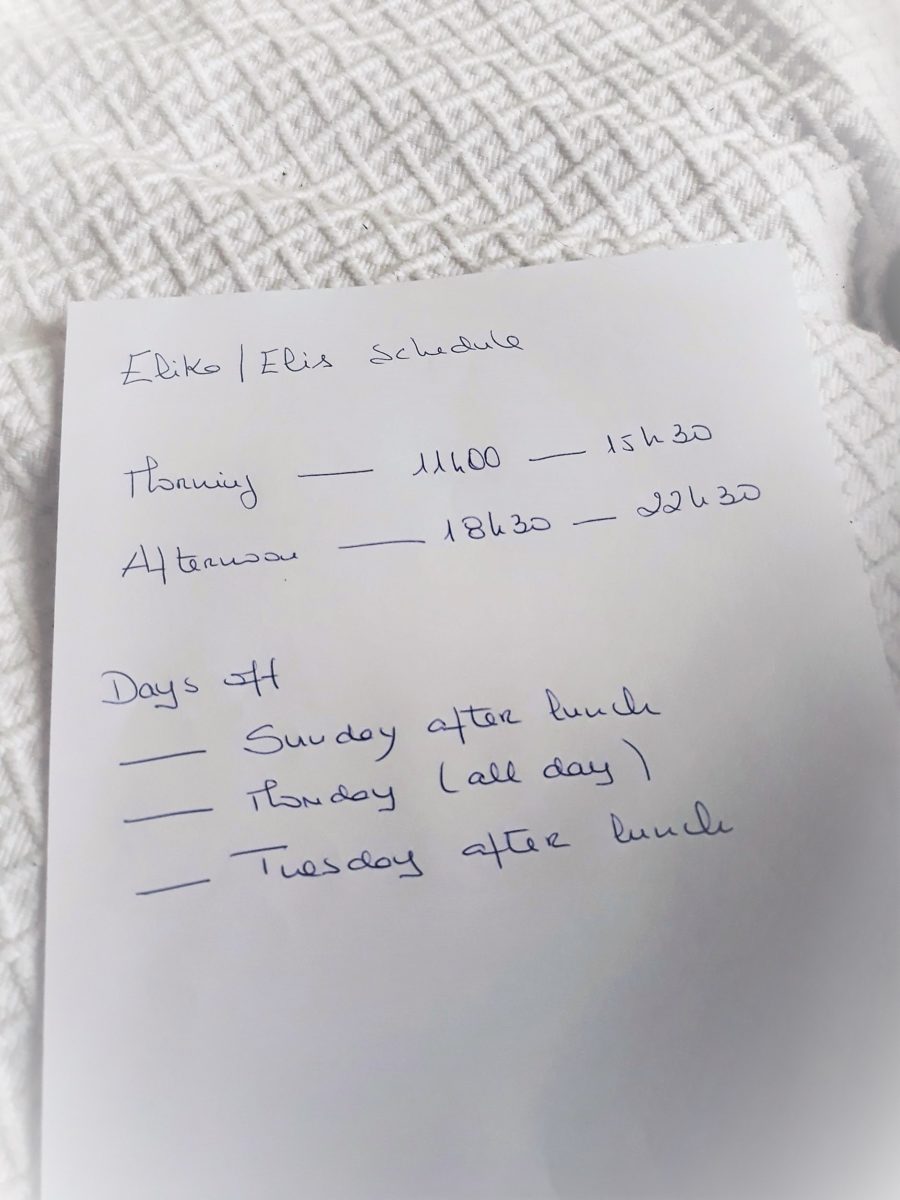 Eliko / Elis schedule
Morning — 11h00 — 15h30
Afternoon — 18h30 — 22h30
Days off
— Sunday after lunch
— Monday (all day)
— Tuesday after lunch